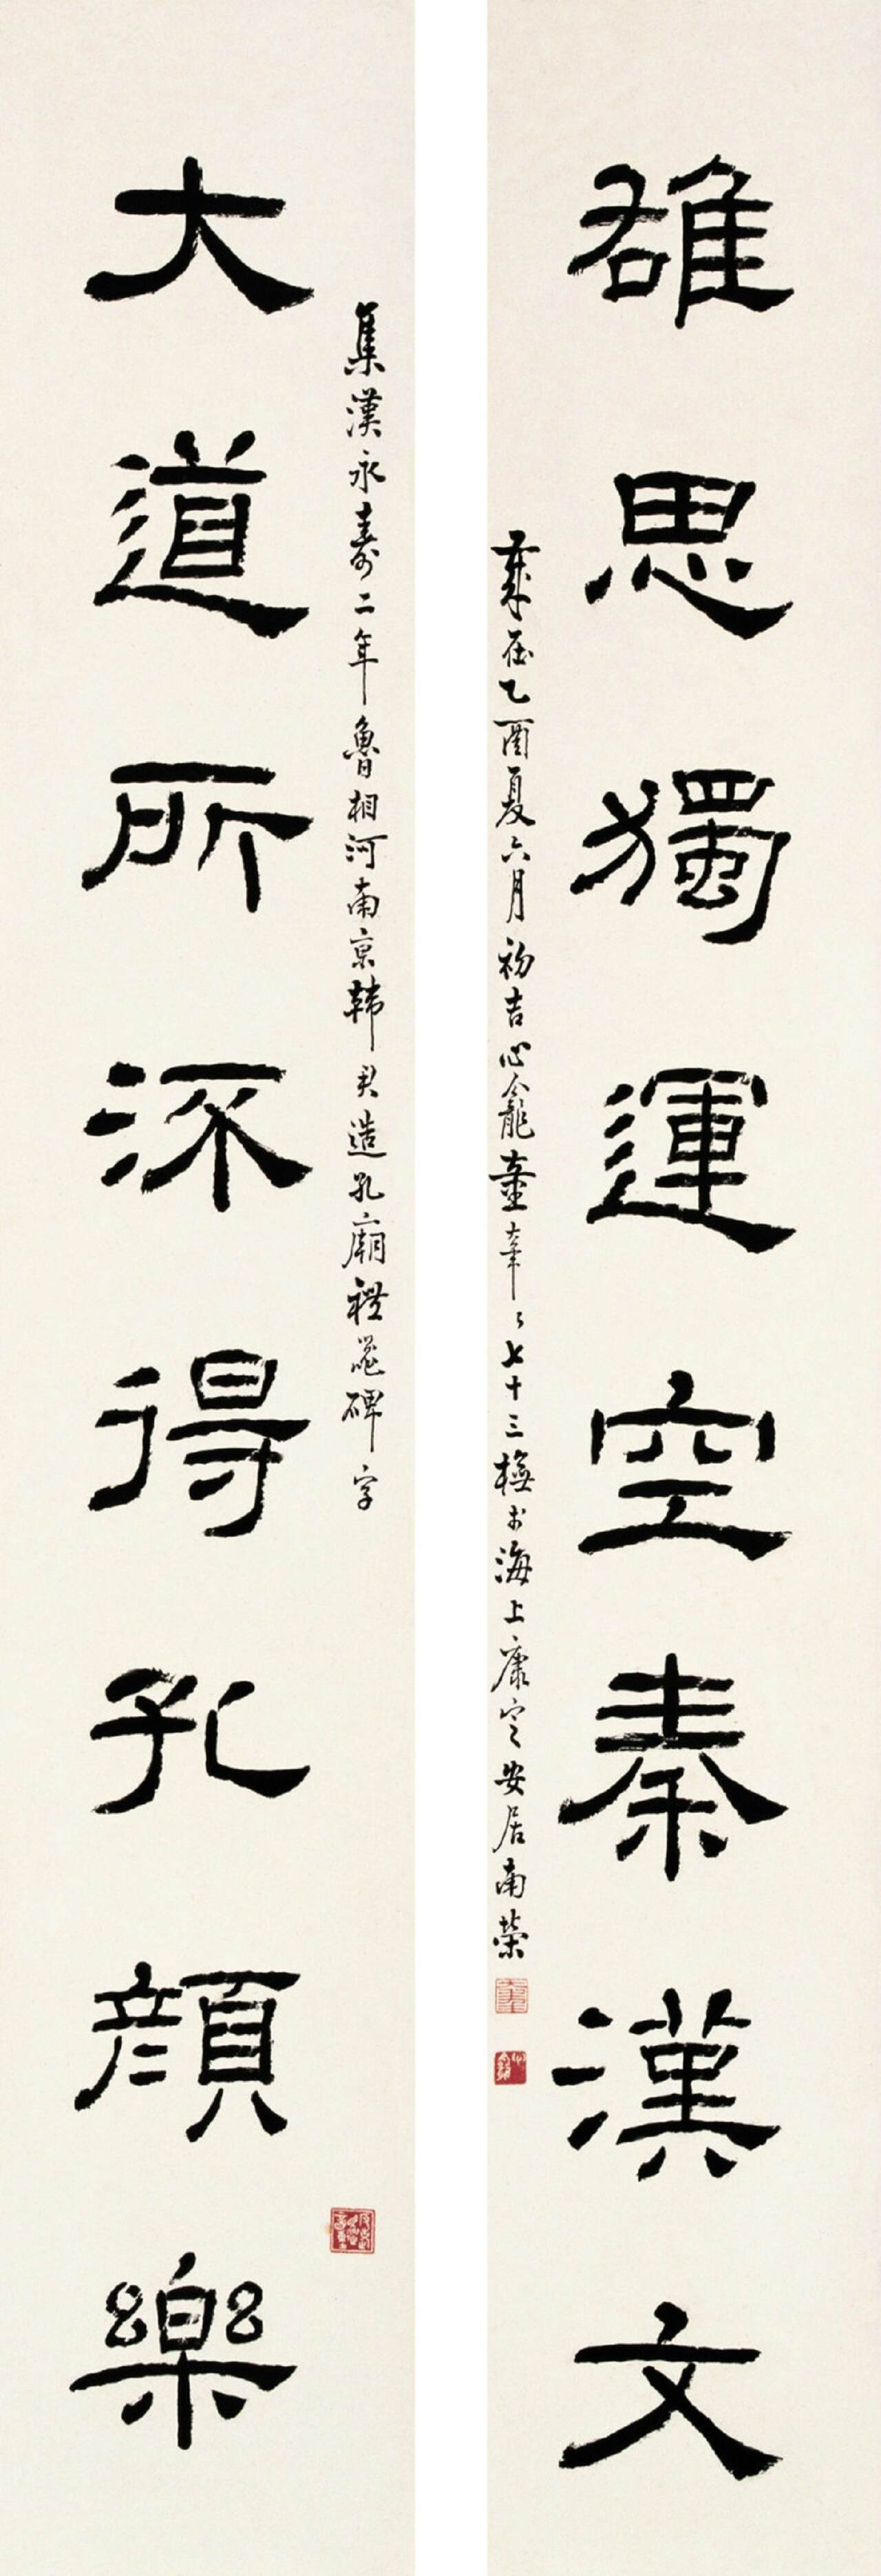 雄思獨運空秦漢文
歲在乙酉夏六月初吉心龕童七十三橅於海上康定安居南榮
集漢永壽二年魯相河南京韓君造孔廟禮器碑字
大道所深得孔顏樂